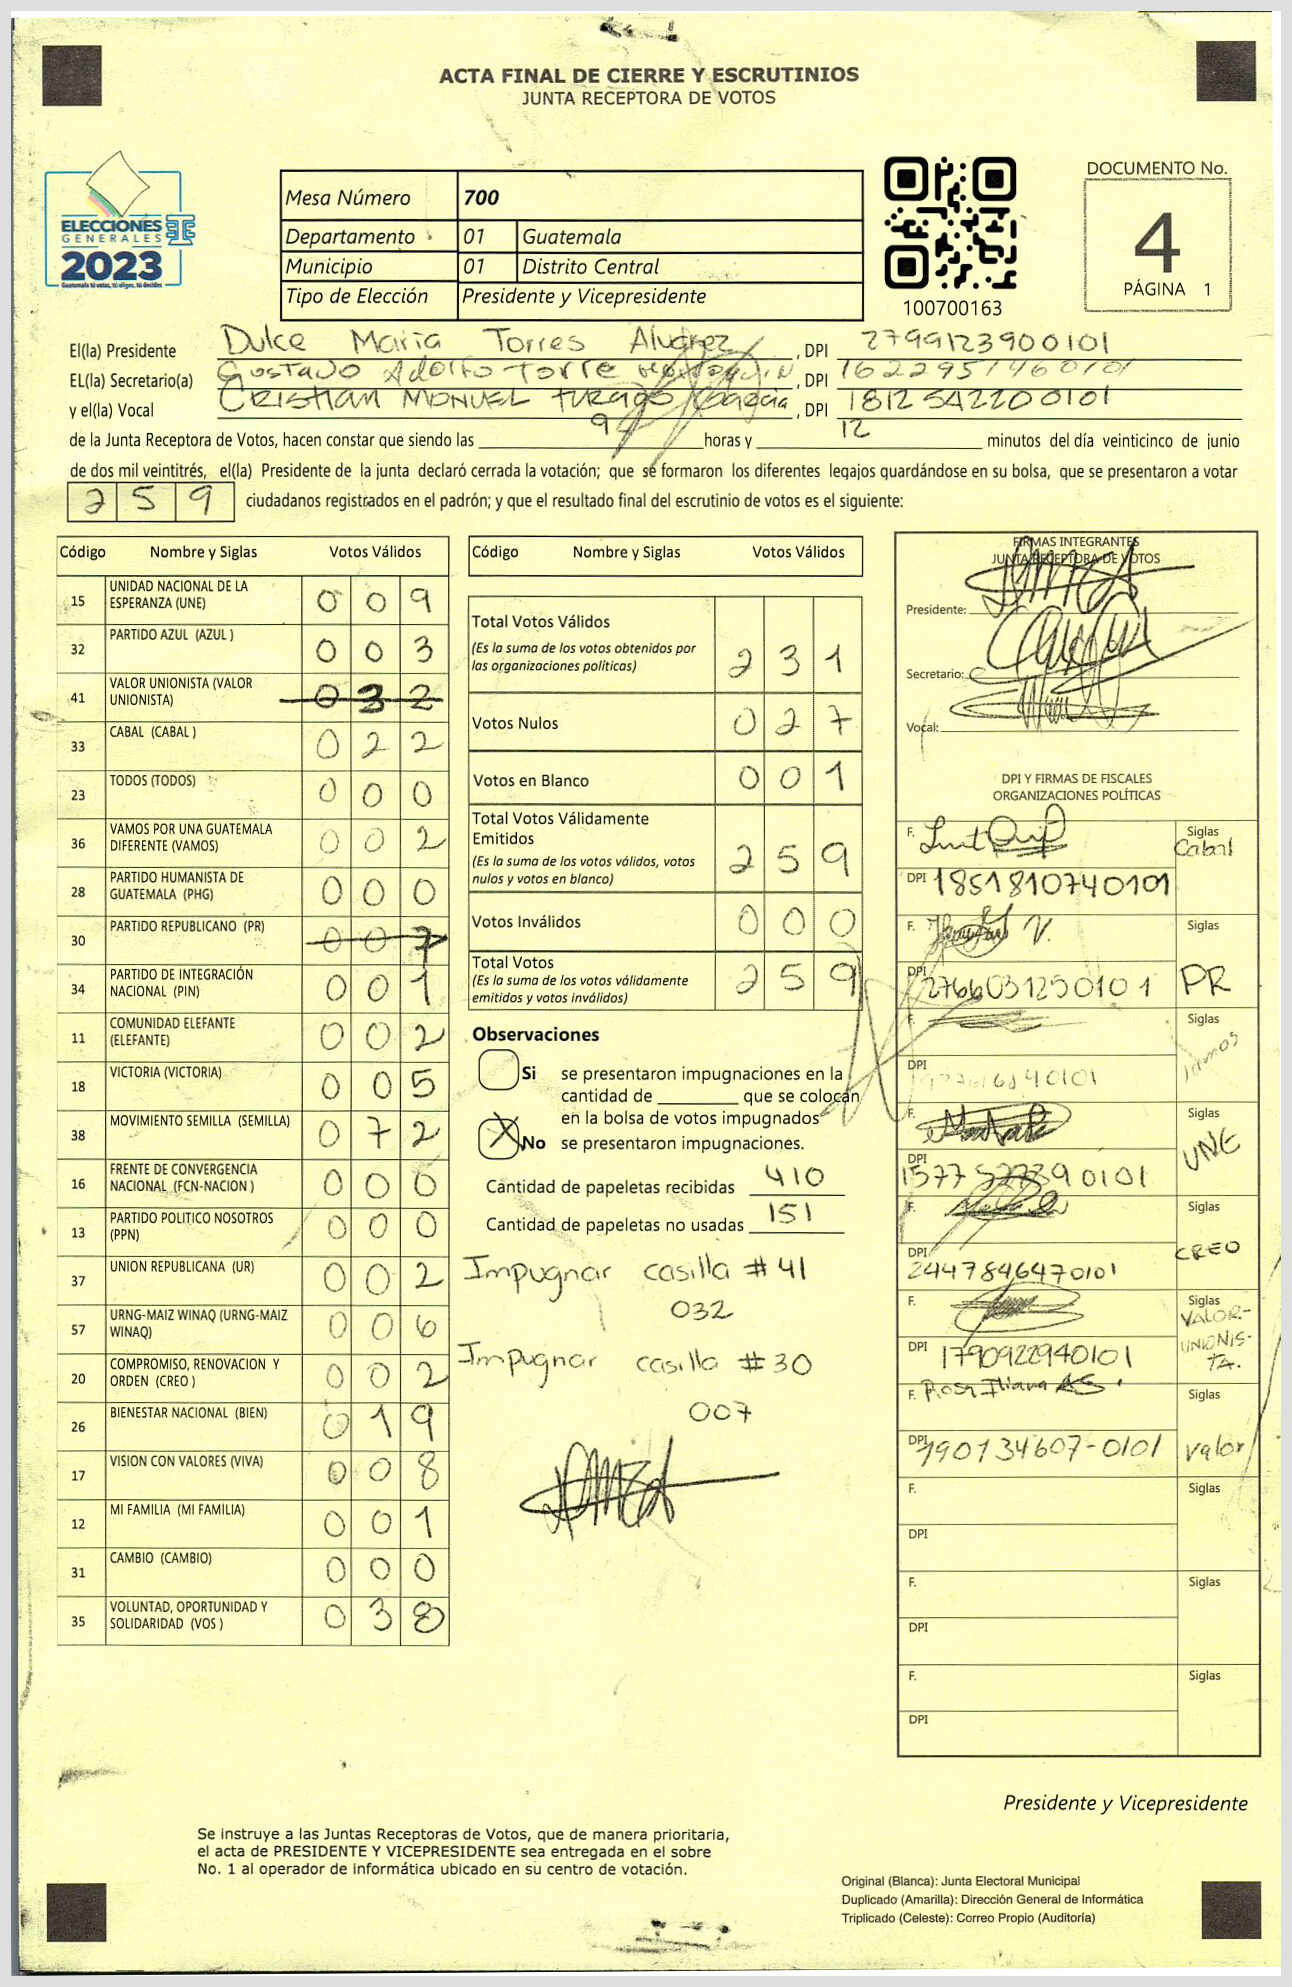 ACTA FINAL DE CIERRE Y ESCRUTINIOS
JUNTA RECEPTORA DE VOTOS
ELECCIONES
GENERALES
2023
Guatemala tú votas, tú eliges, tú decides
Mesa Número 700
Departamento 01 Guatemala
Municipio 01 Distrito Central
Tipo de Elección Presidente y Vicepresidente
100700163
DOCUMENTO No.
4
PÁGINA 1
El(la) Presidente Dulce Maria Torres Alvarez, DPI 2799123900101
EL(la) Secretario(a) Gustavo Adolfo Torre, DPI 1622951460101
y el(la) Vocal Cristian Manuel García, DPI 1812542200101
de la Junta Receptora de Votos, hacen constar que siendo las 9 horas y 12 minutos del día veinticinco de junio
de dos mil veintitrés, el(la) Presidente de la junta declaró cerrada la votación; que se formaron los diferentes legajos quardándose en su bolsa, que se presentaron a votar
259 ciudadanos registrados en el padrón; y que el resultado final del escrutinio de votos es el siguiente:
Código Nombre y Siglas Votos Válidos
15 UNIDAD NACIONAL DE LA ESPERANZA (UNE) 0 0 9
32 PARTIDO AZUL (AZUL ) 0 0 3
41 VALOR UNIONISTA (VALOR UNIONISTA) 0 3 2
33 CABAL (CABAL ) 0 2 2
23 TODOS (TODOS) 0 0 0
36 VAMOS POR UNA GUATEMALA DIFERENTE (VAMOS) 0 0 2
28 PARTIDO HUMANISTA DE GUATEMALA (PHG) 0 0 0
30 PARTIDO REPUBLICANO (PR) 0 0 7
34 PARTIDO DE INTEGRACIÓN NACIONAL (PIN) 0 0 1
11 COMUNIDAD ELEFANTE (ELEFANTE) 0 0 2
18 VICTORIA (VICTORIA) 0 0 5
38 MOVIMIENTO SEMILLA (SEMILLA) 0 7 2
16 FRENTE DE CONVERGENCIA NACIONAL (FCN-NACION ) 0 0 0
13 PARTIDO POLITICO NOSOTROS (PPN) 0 0 0
37 UNION REPUBLICANA (UR) 0 0 2
57 URNG-MAIZ WINAQ (URNG-MAIZ WINAQ) 0 0 6
20 COMPROMISO, RENOVACION Y ORDEN (CREO ) 0 0 2
26 BIENESTAR NACIONAL (BIEN) 0 1 9
17 VISION CON VALORES (VIVA) 0 0 8
12 MI FAMILIA (MI FAMILIA) 0 0 1
31 CAMBIO (CAMBIO) 0 0 0
35 VOLUNTAD, OPORTUNIDAD Y SOLIDARIDAD (VOS ) 0 3 8
Código Nombre y Siglas Votos Válidos
Total Votos Válidos 2 3 1
(Es la suma de los votos obtenidos por
las organizaciones políticas)
Votos Nulos 0 2 7
Votos en Blanco 0 0 1
Total Votos Válidamente
Emitidos 2 5 9
(Es la suma de los votos válidos, votos
nulos y votos en blanco)
Votos Inválidos 0 0 0
Total Votos 2 5 9
(Es la suma de los votos válidamente
emitidos y votos inválidos)
Observaciones
Si se presentaron impugnaciones en la
cantidad de ________ que se colocan
en la bolsa de votos impugnados
X No se presentaron impugnaciones.
Cantidad de papeletas recibidas 410
Cantidad de papeletas no usadas 151
Impugnar casilla #41
032
Impugnar casilla #30
007
FIRMAS INTEGRANTES
JUNTA RECEPTORA DE VOTOS
Presidente:
Secretario:
Vocal:
DPI Y FIRMAS DE FISCALES
ORGANIZACIONES POLÍTICAS
F. Siglas Cabal
DPI 1851810740101
F. Siglas PR
DPI 2766031250101
F. Siglas
DPI
F. Siglas UNE
DPI
F. Siglas CREO
DPI 2447846470101
F. Siglas VALOR-UNIONISTA.
DPI 1790922940101
F. Rosa Iliana Siglas Valor
DPI 190134607-0101
F. Siglas
DPI
F. Siglas
DPI
F. Siglas
DPI
Presidente y Vicepresidente
Se instruye a las Juntas Receptoras de Votos, que de manera prioritaria,
el acta de PRESIDENTE Y VICEPRESIDENTE sea entregada en el sobre
No. 1 al operador de informática ubicado en su centro de votación.
Original (Blanca): Junta Electoral Municipal
Duplicado (Amarilla): Dirección General de Informática
Triplicado (Celeste): Correo Propio (Auditoría)